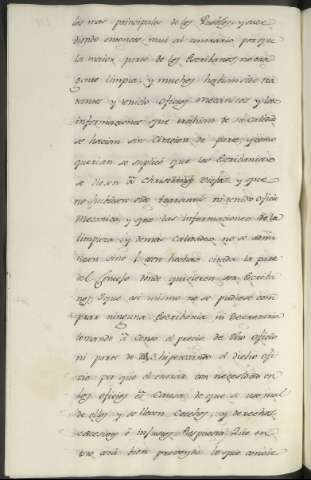 los mas principales de los Pueblos, y suce
diendo entonces mui al contrario porque
la maior parte de los Escribanos no era
gente limpia, y muchos habian sido
y tenido Oficios mecanicos y las
informaciones que recibian de su calidad
se hacian sin Citacion de parte, y como
querian se suplicó que las Escribanias
se diesen á Christianos Viejos, y que
no hubiesen sido ni tenido oficio
Mecanico, y que las informaciones de la
limpieza y demas calidades no se admi
tiesen sino fueren hechas citada la parte
del Consejo donde quisieren ser Escriba
nos, y que asi mismo no se pudiese com
prar ninguna Escribania ni
tomando á censo el precio de dicho oficio
ni parte de él hipotecando el dicho ofi
cio por que el entrar con necesidad en
los oficios es Causa de que se use mal
de ellos y se lleven cohechos, y derechos
excesivos é injustos. Respuesta. Que en
esto está bien proveido lo que conviene